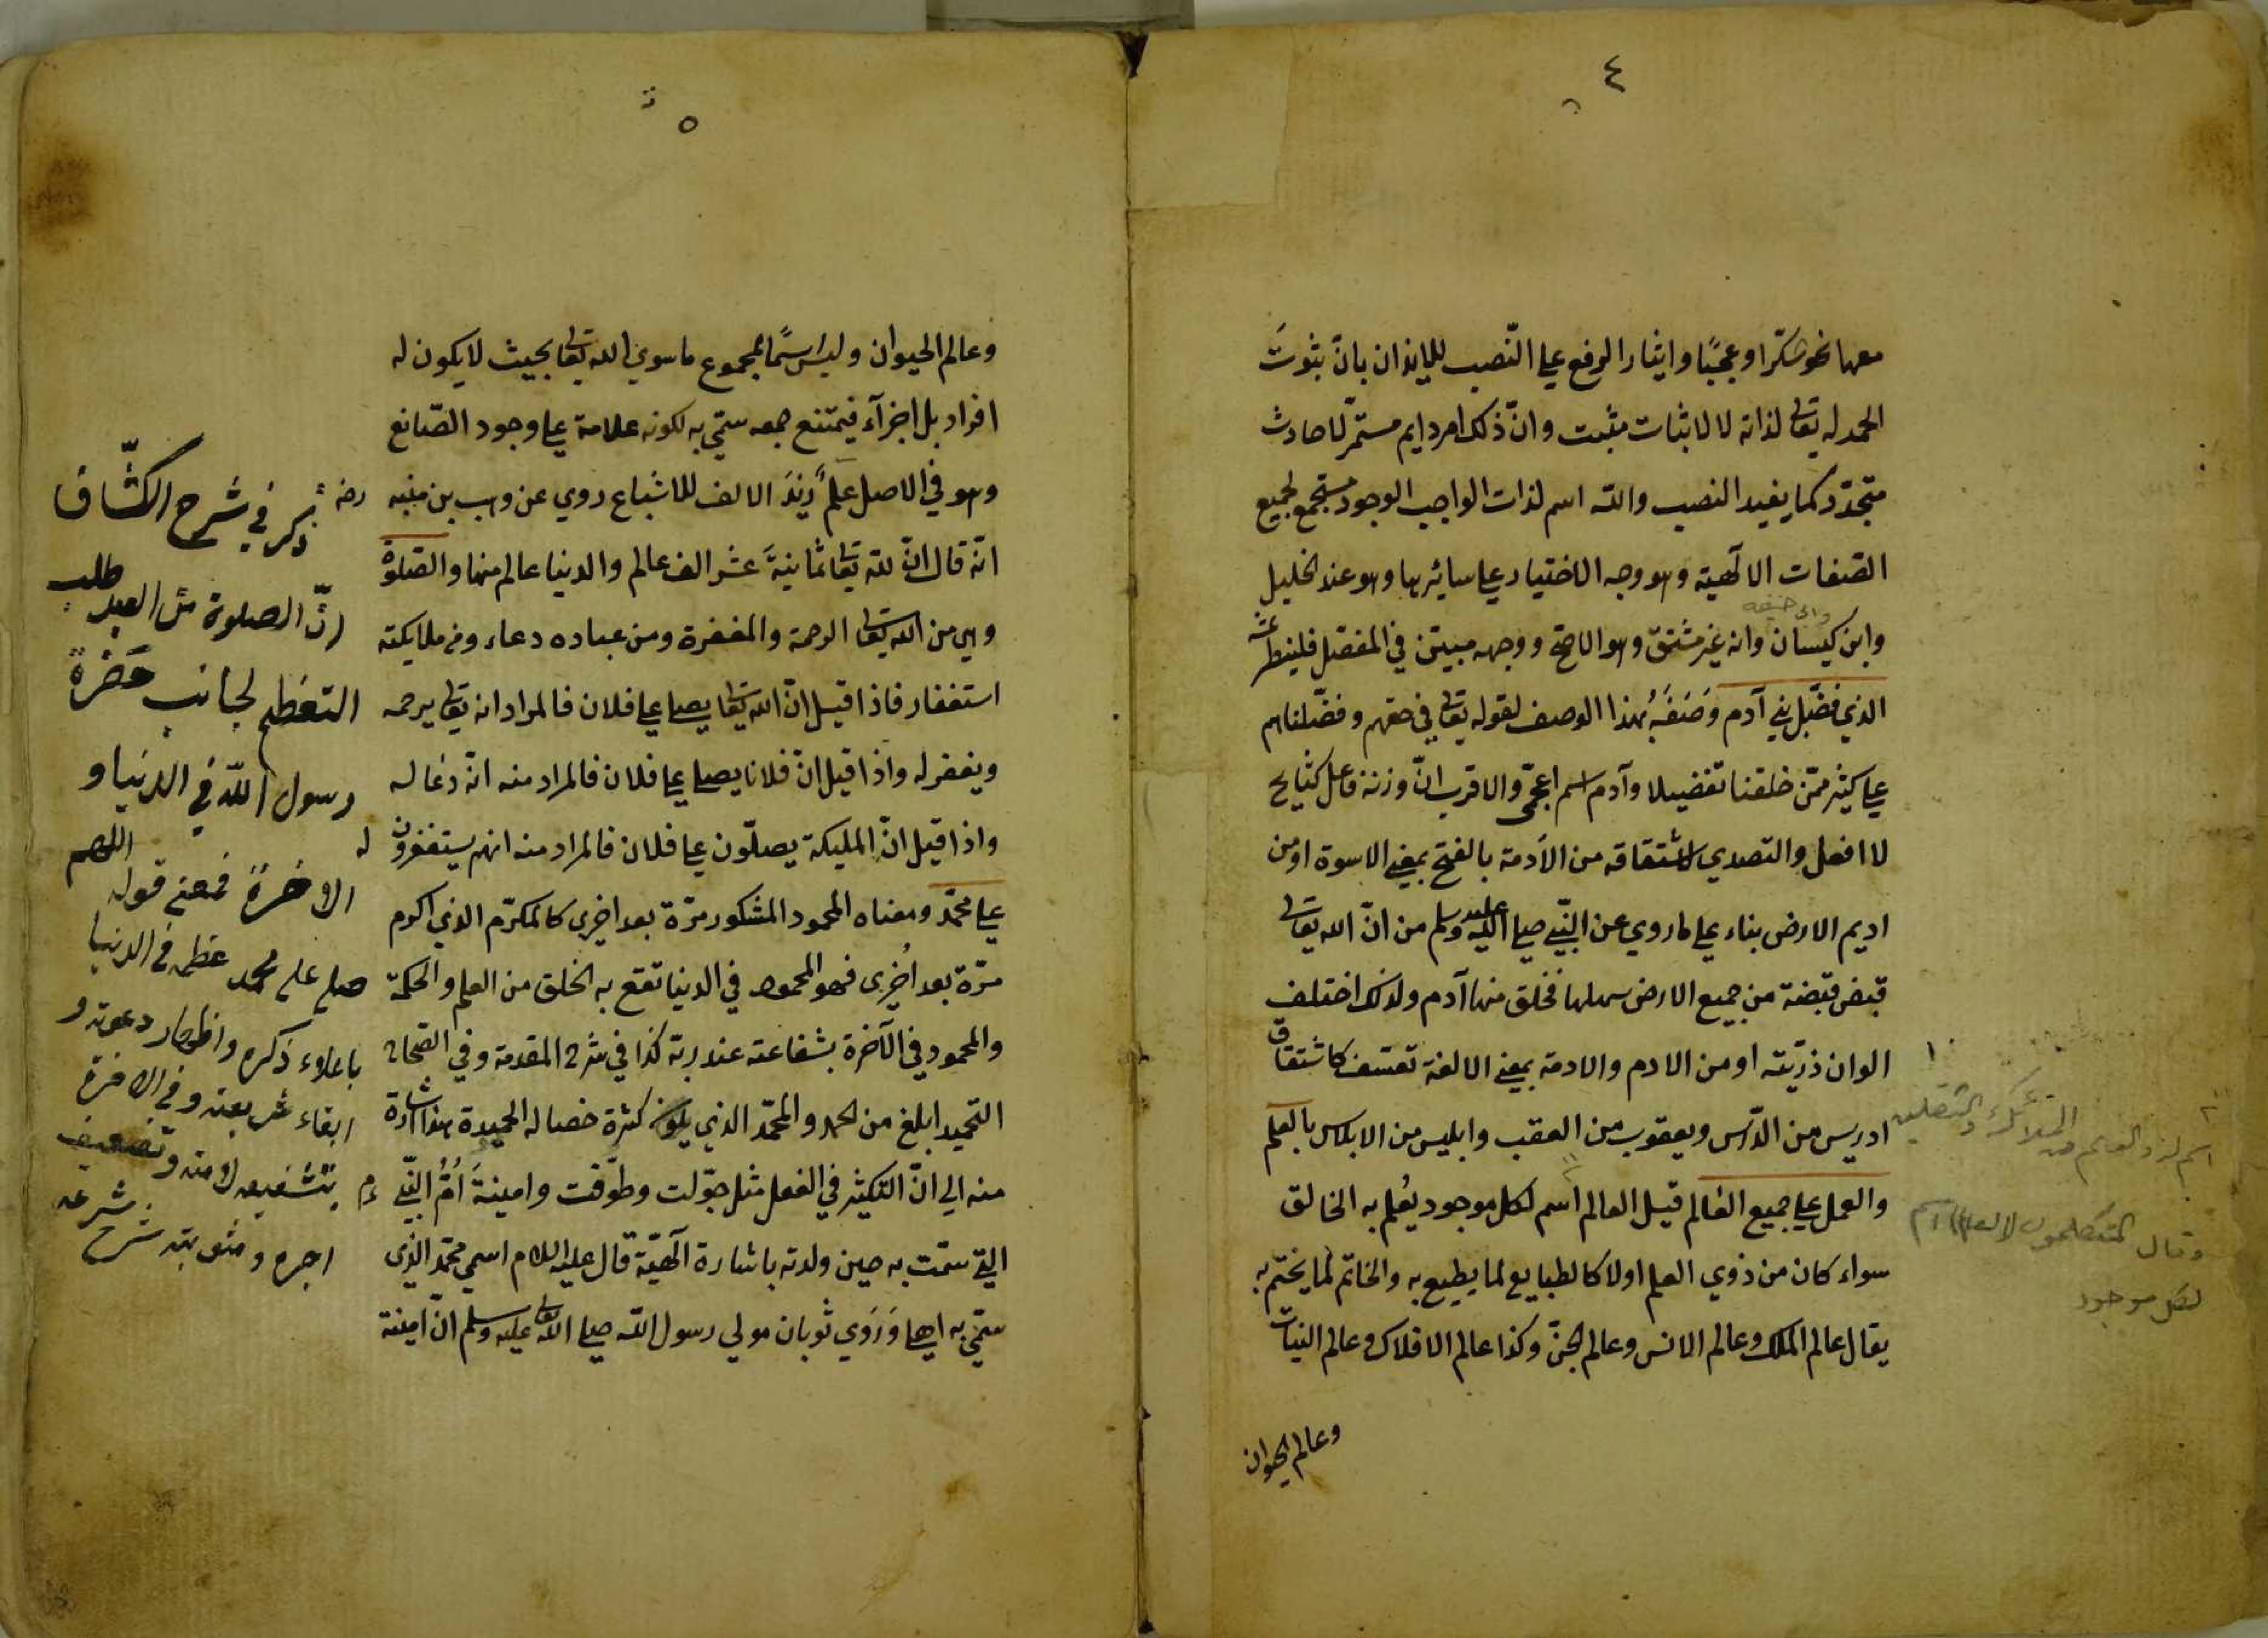 ٤
معها نحو شكرا وعجبًا وايثار الرفع علي النّصب للايذان بانّ ثبوتَ
الحمد له تعالى لذاته لا لاثبات مثبت وانّ ذلك امر دايم مستمرّ لا حادث
متجدّد كما يفيد النصب والله اسم لذات الواجب الوجود مستجمع لجميع
الصّفات الالٓهية وهو وجه الاختيار علي سائرها وهو عند الخليل
وابى حنيفه
وابن كيسان وانه غير مشتقّ وهو الاصحّ ووجهه مبيّن في المفصّل فلينظر عنه
الذي فضّل بني آدم وَصَفَهُ بهذا الوصف لقوله تعالى في حقهم وفضّلناهم
علي كثير ممّن خلقنا تفضيلا وآدم اسم اعجمّى والاقرب انّ وزنه فاعل كشالخ
لا افعل والتصدي لاشتقاقه من الأدمة بالفتح بمعني الاسوة او من
اديم الارض بناء علي ما روي عن النّبي صلي الله عليه وسلم من انّ الله تعالى
قبض قبضة من جميع الارض سهلها فخلق منها آدم ولذلك اختلف
الوان ذرّيته او من الادم والادمة بمعني الالفة تعسّف كاشتقاق
ادريس من الدّرس ويعقوب من العقب وابليس من الابلاس بالعلم
والعمل علي جميع العالم قيل العالم اسم لكل موجود يُعلم به الخالق
سواء كان من ذوي العلم اولا كالطبايع لما يطبع به والخاتم لما يختم به
يقال عالم الملك وعالم الانس وعالم الجنّ وكذا عالم الافلاك وعالم النبات
وعالم الحيوان
اسم لذوى العلم من الملائكة والثقلين
وقال المتكلمون العالم اسم
لكل موجود
٥
وعالم الحيوان وليس اسمًا لمجموع ما سوي الله تعالى بحيث لا يكون له
افراد بل اجزآء فيمتنع جمعه سمّي به لكونه علامة علي وجود الصّانع
وهو في الاصل علمٌ زيْدَ الالف للاشباع روي عن وهب بن منبه
انّه قال انّ لله تعالى ثمانيةَ عشر الف عالم والدنيا عالم منها والصّلوة
وهي من الله تعالى الرحمة والمغفرة ومن عباده دعاء ومن ملايكته
استغفار فاذا قيل انّ الله تعالى يصلي علي فلان فالمراد انه تعالى يرحمه
ويغفر له واذا قيل انّ فلانا يصلي علي فلان فالمراد منه انّه دعا له
واذا قيل انّ المليكة يصلّون علي فلان فالمراد منه انهم يستغفرون له
علي محمّد ومعناه المحمود المشكور مرّة بعد اخرى كالمكرّم الذي اكرم
مرّة بعد اُخرى فهو المحمود في الدنيا تقع به الخلق من العلم والحكمة
والمحمود في الآخرة بشفاعته عند ربّه كذا في شرح المقدمة وفي الصّحاح
التّحميد ابلغ من الحمد والمحمّد الذي يكون كثرة خصاله الحميدة هذا اشارة
منه الي انّ التّكثير في الفعل مثل جوّلت وطوّقت وامينةَ اُمُّ النّبي
التي سمّت به حين ولدته باشارة الٓهيّة قال عليه السلام اسمي محمّد الذي
سمّي به اهلي وَرَوي ثوبان مولي رسول الله صلي الله تعالى عليه وسلم انّ امينة
ذكر في شرح الكشّاف
انّ الصلوة من العبد طلب
التعظيم لجانب حَضرة
رسول الله في الدنيا و
الاخرة فمعنى قوله اللهم
صلى على محمد عظمه في الدنيا
باعلاء ذكره واظهار دعوته و
ابقاء شريعته وفي الاخرة
بتشفيعه لامته وتضعيف
اجره ومثوبته شرح شرعه